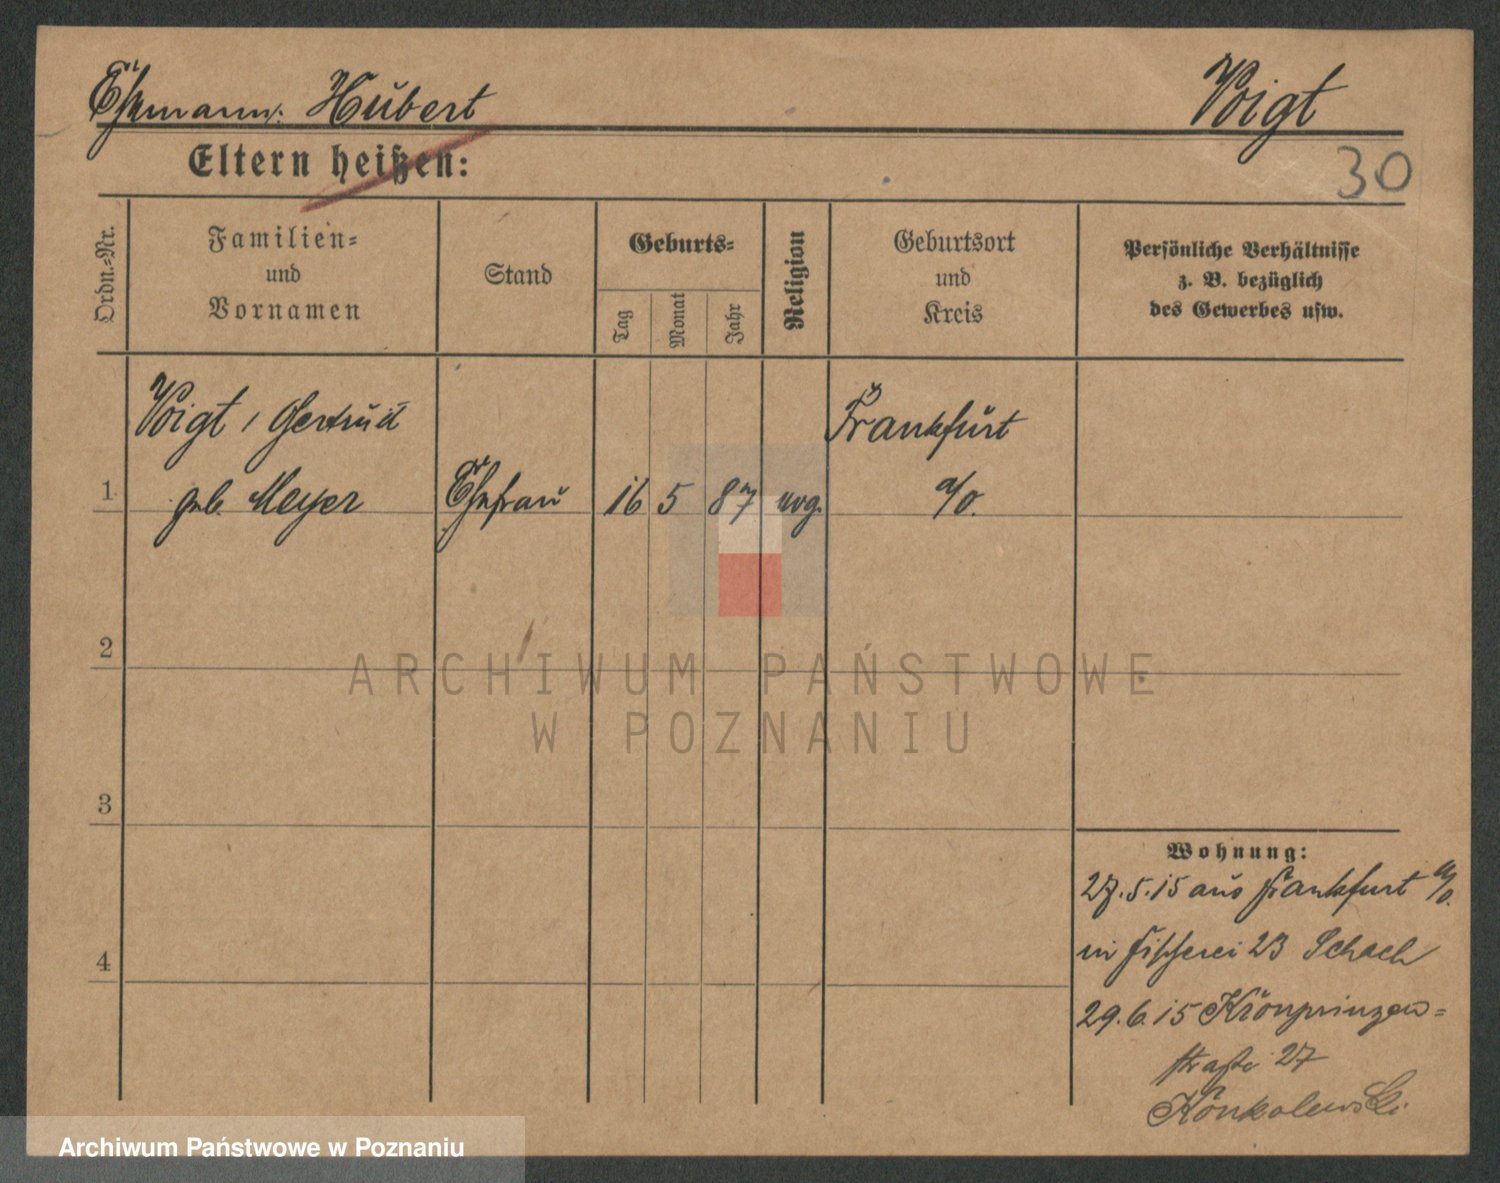 Ehemann: Hubert
Voigt
Eltern heißen:
30
Ordn.-Nr.
Familien-
und
Vornamen
Stand
Geburts-
Tag
Monat
Jahr
Religion
Geburtsort
und
Kreis
Persönliche Verhältnisse
z. B. bezüglich
des Gewerbes usw.
Voigt, Gertrud
Frankfurt
1 geb. Meyer Ehefrau 16 5 87 evg. a/o.
2
ARCHIWUM PAŃSTWOWE
W POZNANIU
3
Wohnung:
27.5.15 aus Frankfurt a/o.
in Fischerei 23 Schach
4
29.6.15 Kronprinzen-
straße 27
Konkolewski
Archiwum Państwowe w Poznaniu